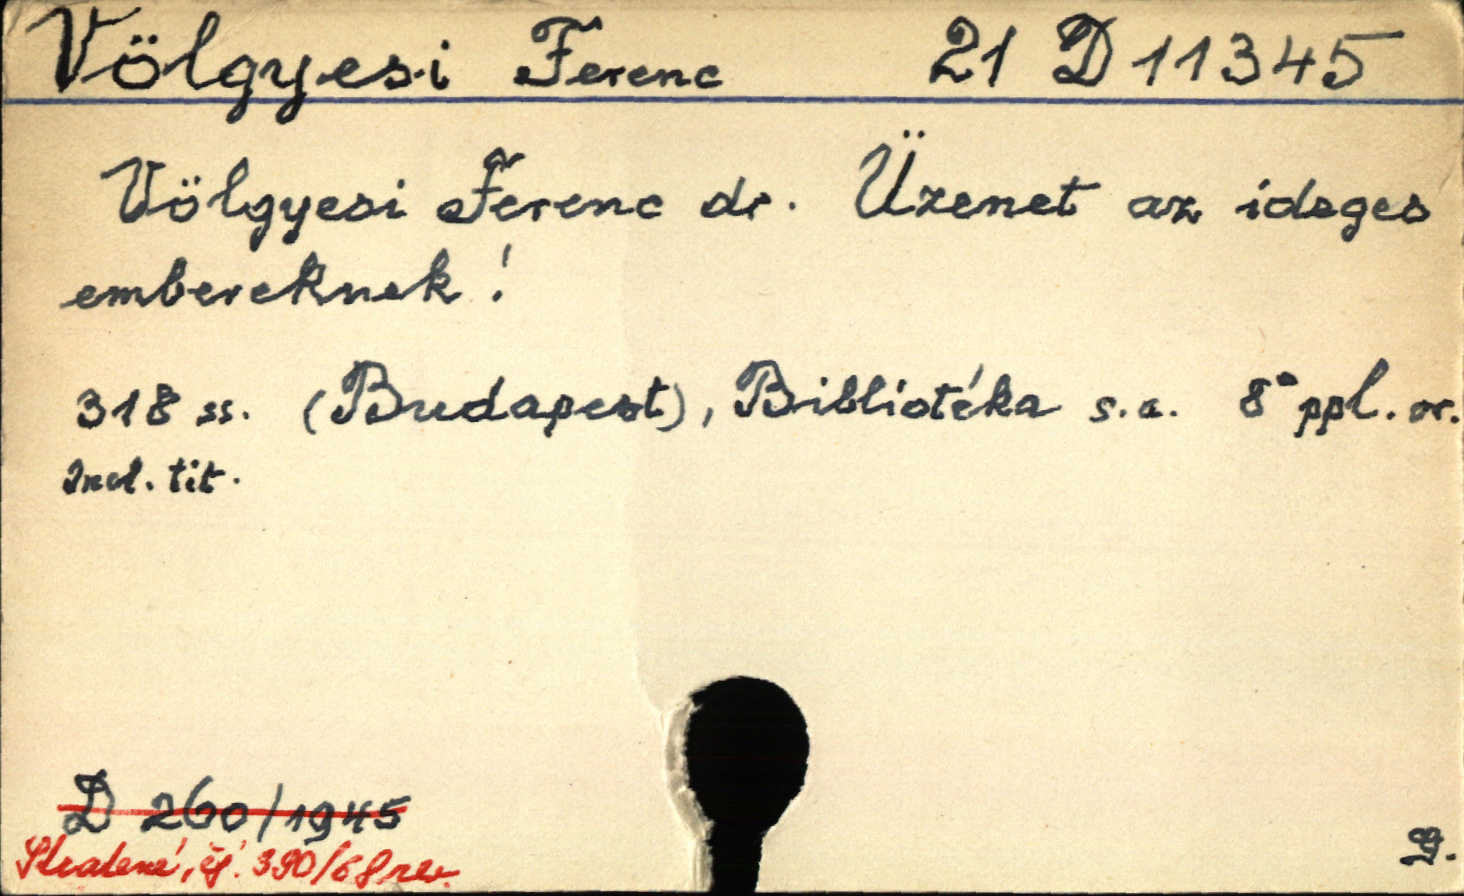 Völgyesi Ferenc 21 D 11345
Völgyesi Ferenc dr. Üzenet az ideges
embereknek!
318 ss. (Budapest), Bibliotéka s.a. 8° ppl. or.
Incl. tit.
D 260/1945
Stratené, čj. 390/68 rev.
G.